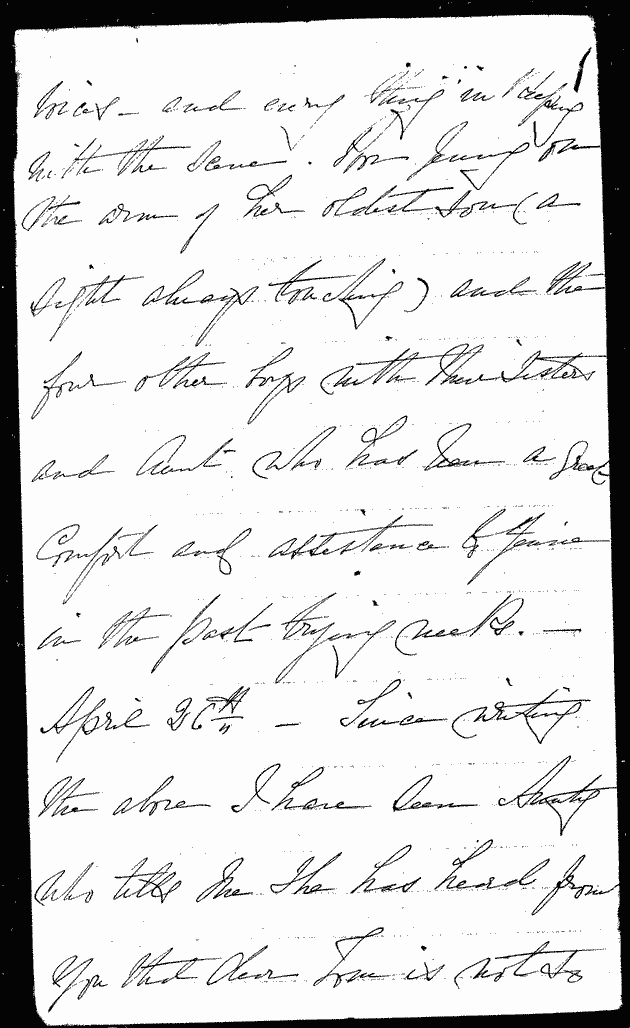 voices - and every thing in keeping
with the scene. Poor Jenny on
the arm of her oldest son (a
sight always touching) and the
four other boys with their Sisters
and Aunt who has been a great
Comfort and assistance to Jennie
in the past trying weeks. —
April 26th — Since writing
the above I have seen Aunty
who tells me she has heard from
You that dear Tom is not so